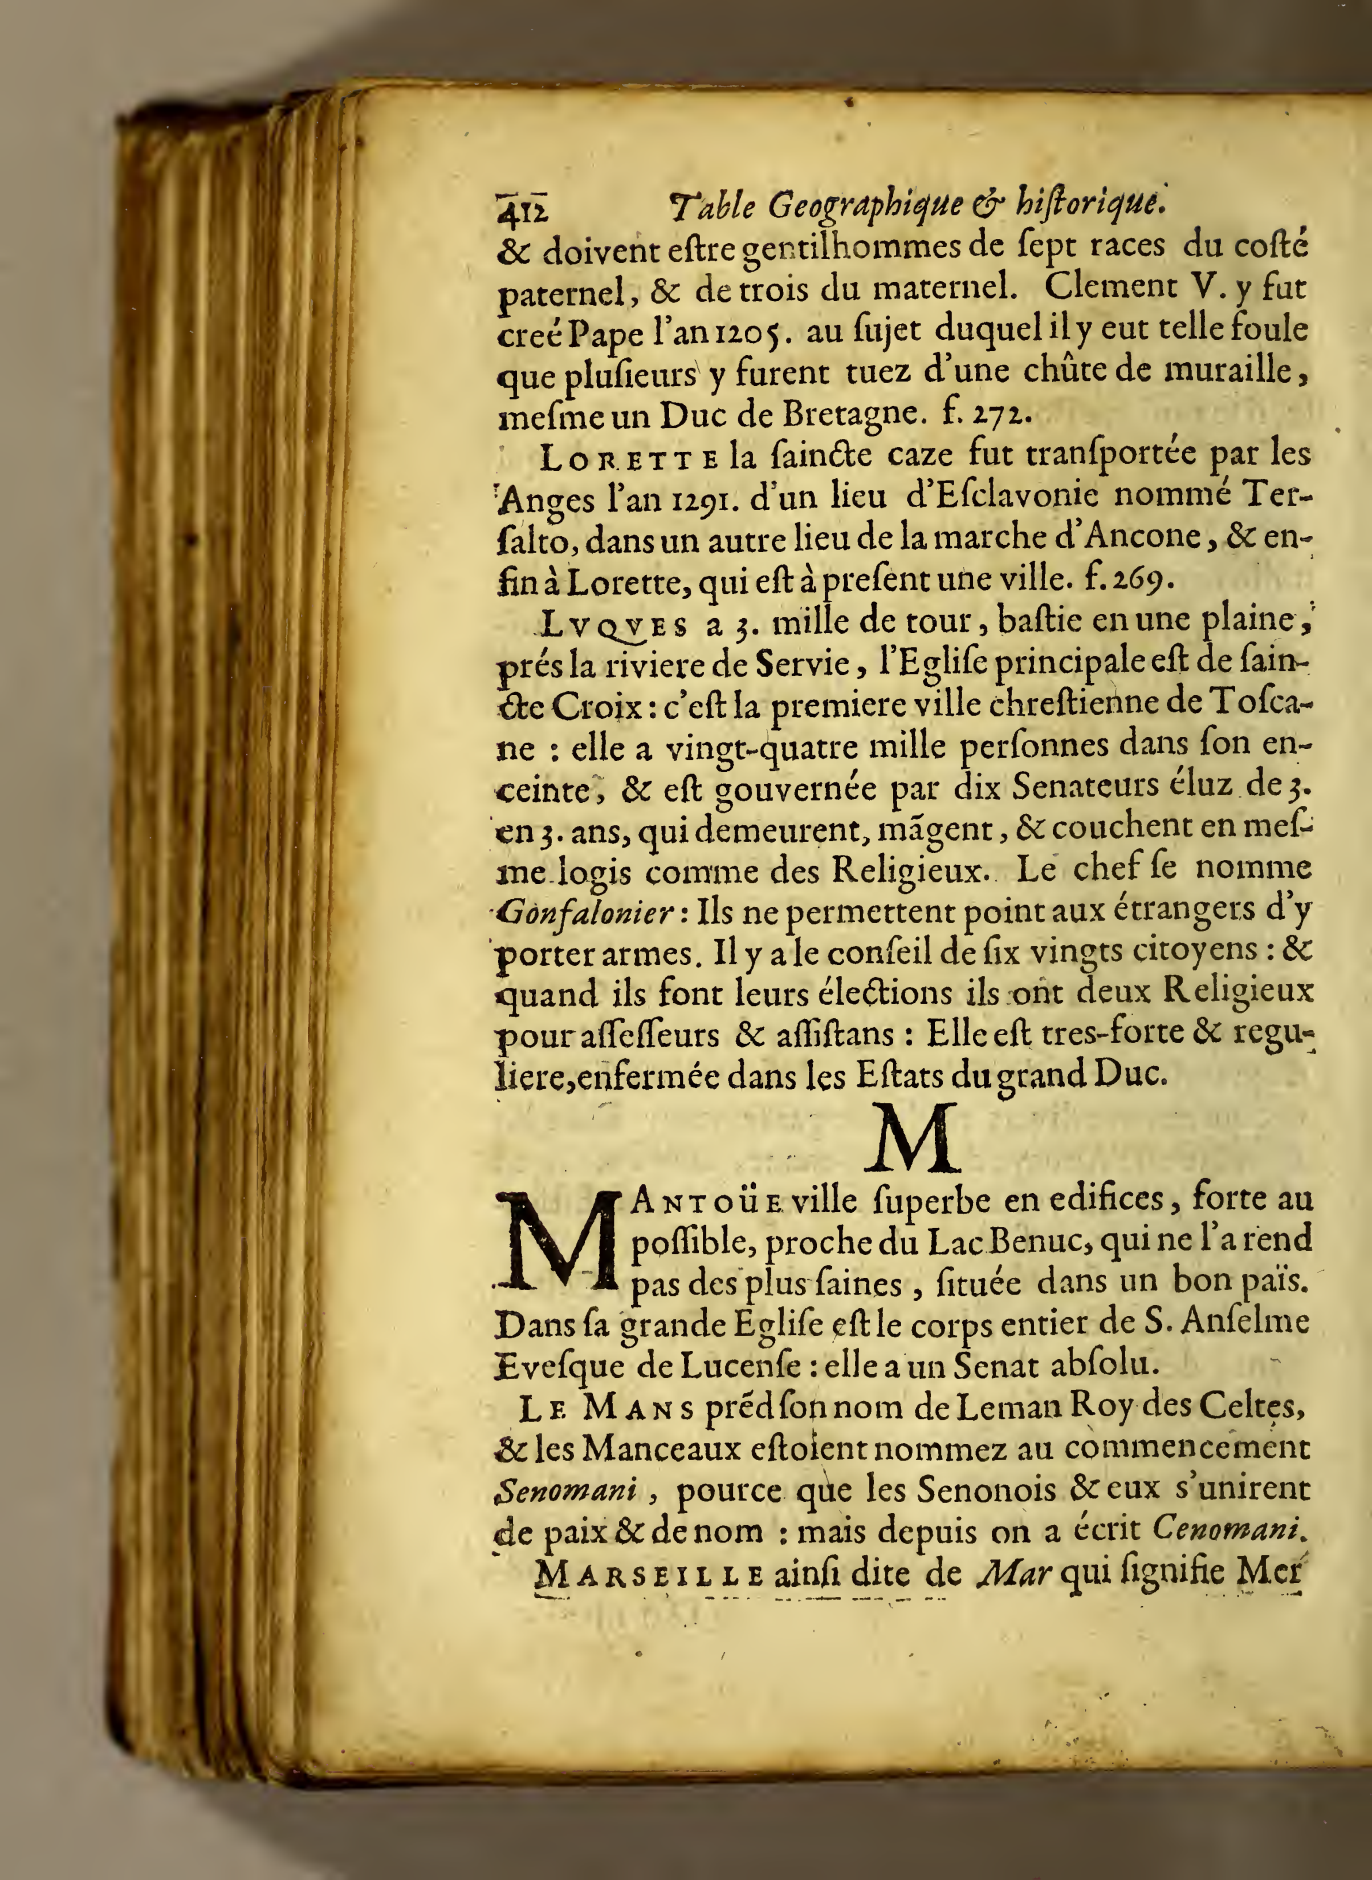 412 Table Geographique & hiſtorique.
& doivent eſtre gentilhommes de ſept races du coſté
paternel, & de trois du maternel. Clement V. y fut
creé Pape l'an 1205. au ſujet duquel il y eut telle foule
que pluſieurs y furent tuez d'une chûte de muraille,
meſme un Duc de Bretagne. f. 272.
LORETTE la ſaincte caze fut tranſportée par les
Anges l'an 1291. d'un lieu d'Eſclavonie nommé Ter-
ſalto, dans un autre lieu de la marche d'Ancone, & en-
fin à Lorette, qui eſt à preſent une ville. f. 269.
LVQVES a 3. mille de tour, baſtie en une plaine,
prés la riviere de Servie, l'Egliſe principale eſt de ſain-
cte Croix : c'eſt la premiere ville chreſtienne de Toſca-
ne : elle a vingt-quatre mille perſonnes dans ſon en-
ceinte, & eſt gouvernée par dix Senateurs éluz de 3.
en 3. ans, qui demeurent, mãgent, & couchent en meſ-
me logis comme des Religieux. Le chef ſe nomme
Gonfalonier : Ils ne permettent point aux étrangers d'y
porter armes. Il y a le conſeil de ſix vingts citoyens : &
quand ils font leurs élections ils ont deux Religieux
pour aſſeſſeurs & aſſiſtans : Elle eſt tres-forte & regu-
liere, enfermée dans les Eſtats du grand Duc.
M
MANTOÜE ville ſuperbe en edifices, forte au
poſſible, proche du Lac Benuc, qui ne l'a rend
pas des plus ſaines, ſituée dans un bon païs.
Dans ſa grande Egliſe eſt le corps entier de S. Anſelme
Eveſque de Lucenſe : elle a un Senat abſolu.
LE MANS prẽd ſon nom de Leman Roy des Celtes,
& les Manceaux eſtoient nommez au commencement
Senomani, pource que les Senonois & eux s'unirent
de paix & de nom : mais depuis on a écrit Cenomani.
MARSEILLE ainſi dite de Mar qui ſignifie Mer